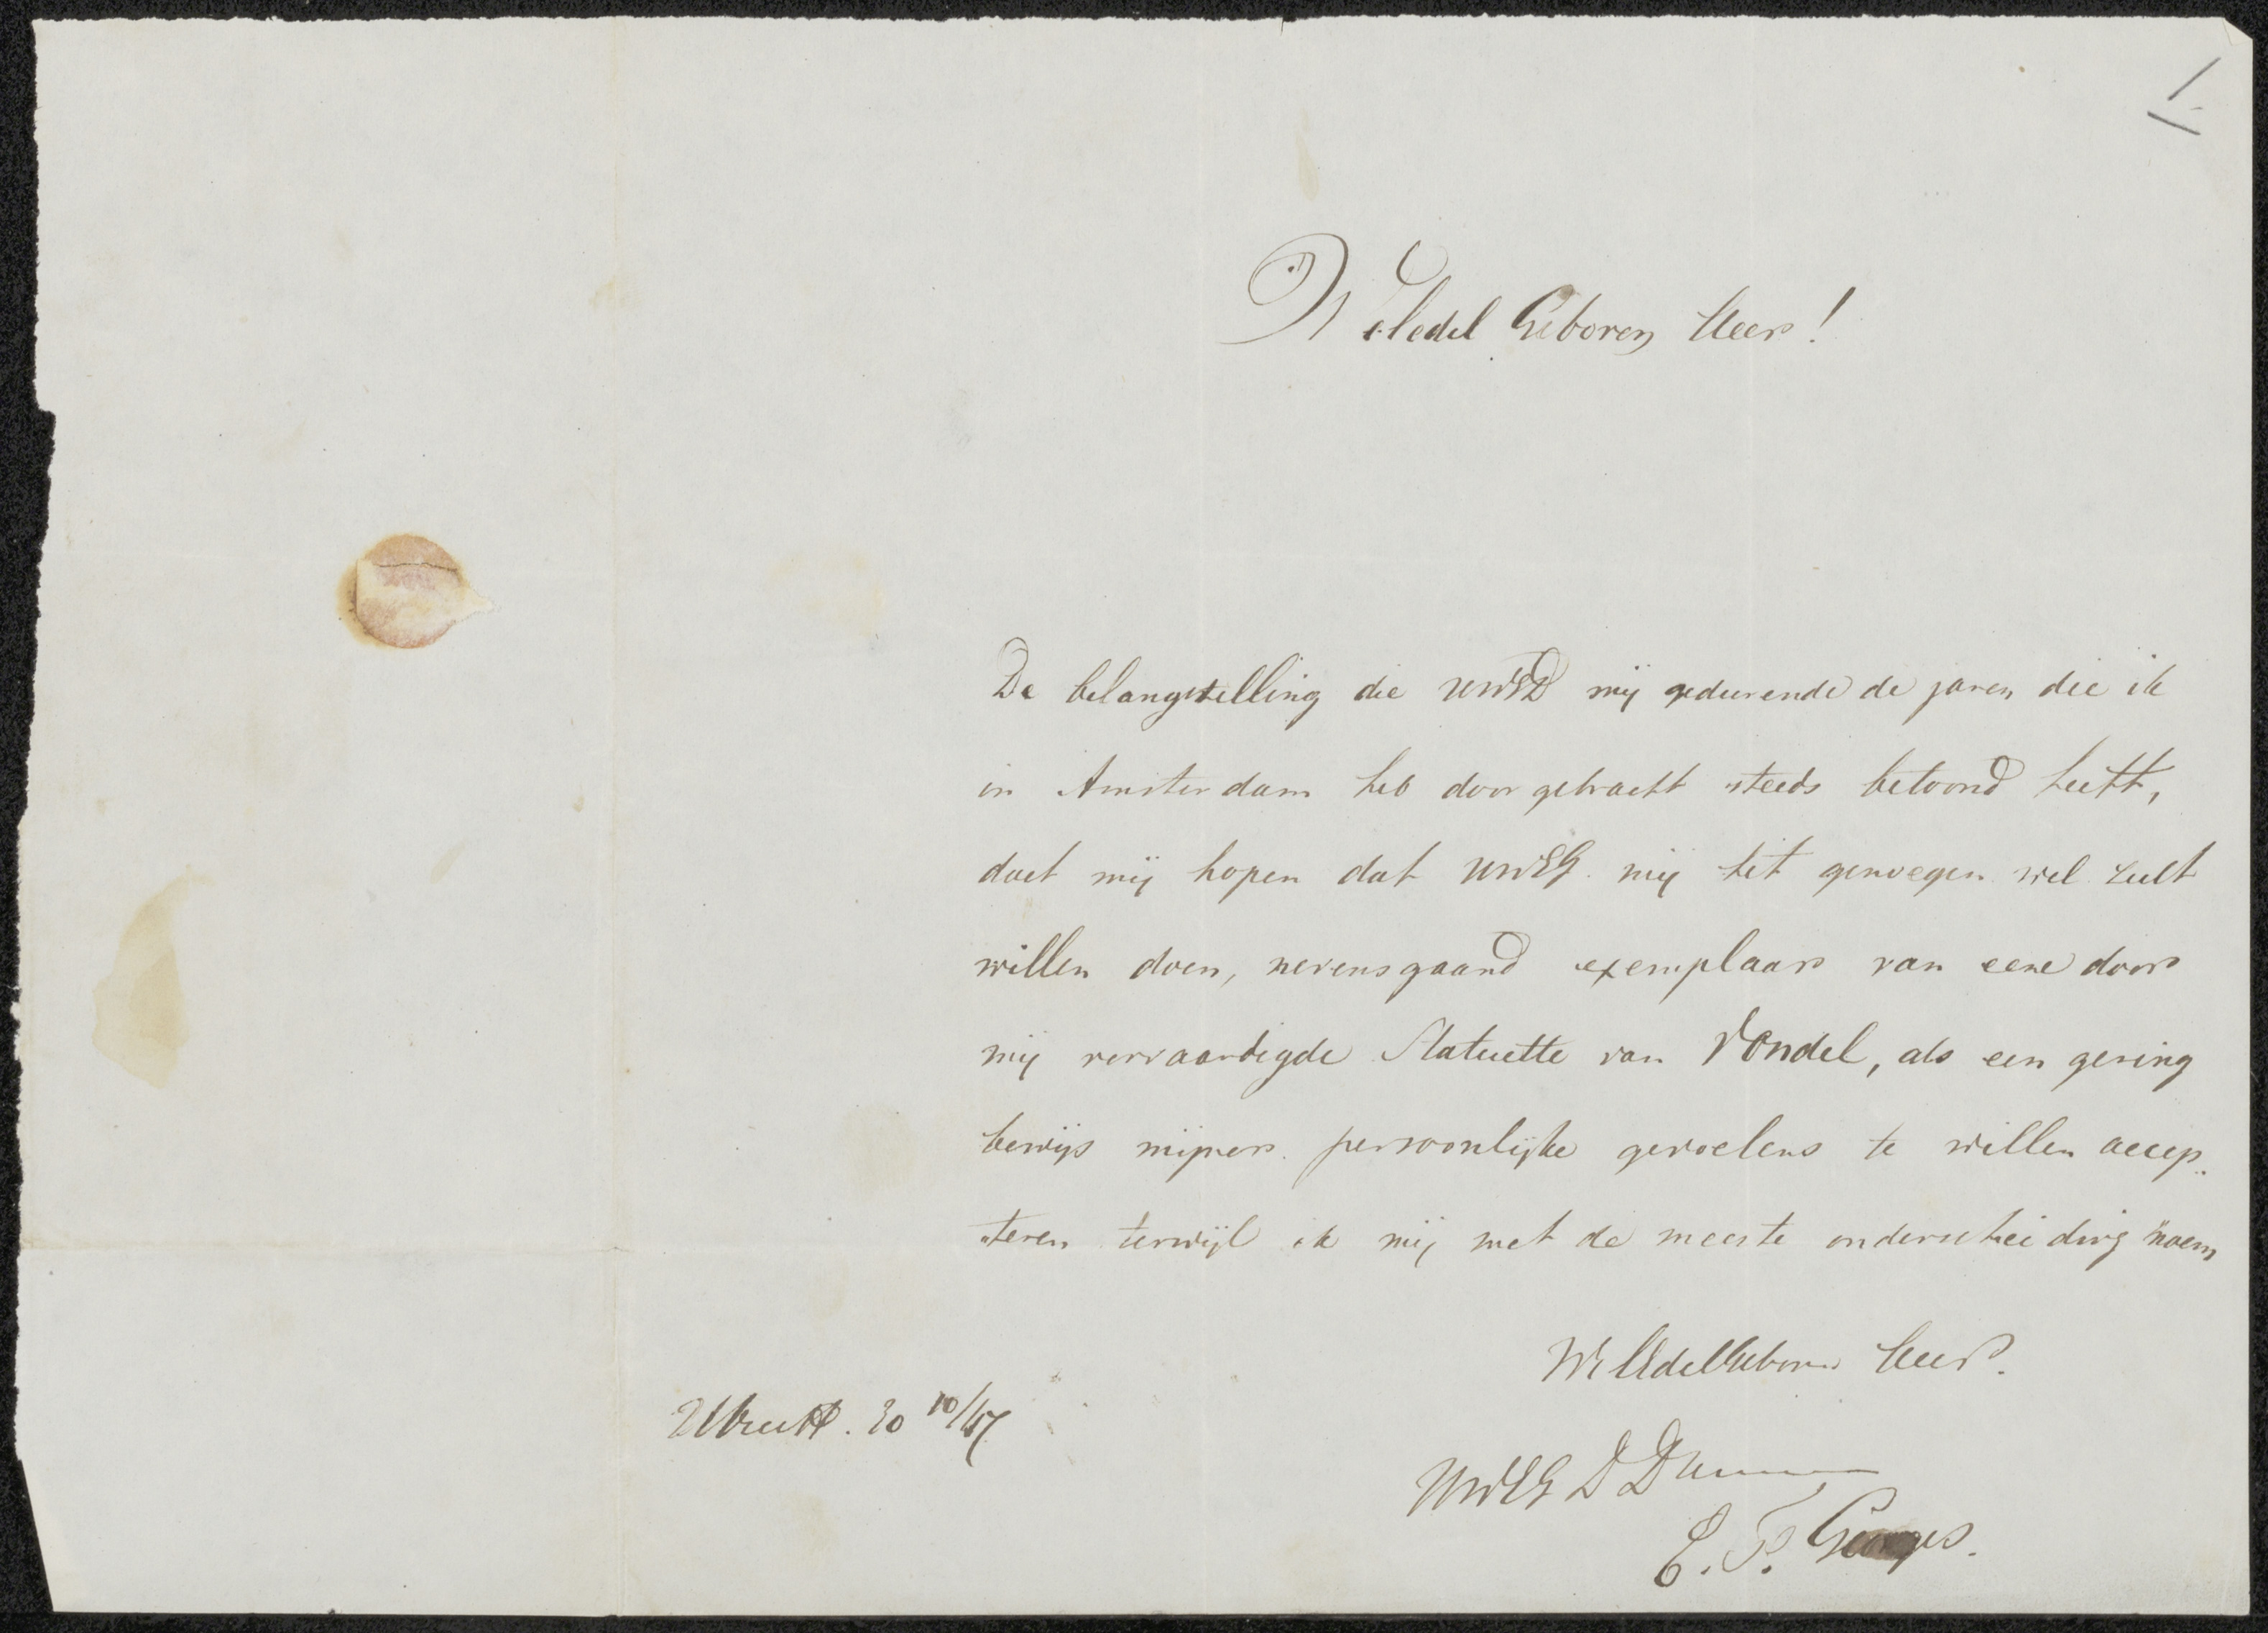 1.
WelEdel Geboren Heer!
De belangstelling die UWED mij gedurende de jaren die ik
in Amsterdam heb doorgebracht steeds betoond heeft,
doet mij hopen dat UWEG. mij het genoegen wel zult
willen doen, nevensgaand exemplaar van eene door
mij vervaardigde Statuette van Vondel, als een gering
bewijs mijner persoonlijke gevoelens te willen accep„
„teren terwijl ik mij met de meeste onderscheiding noem
WelEdelGeboren Heer.
Utrecht. 30 10/47
UWEG D Dienaar
E. F. Georges.